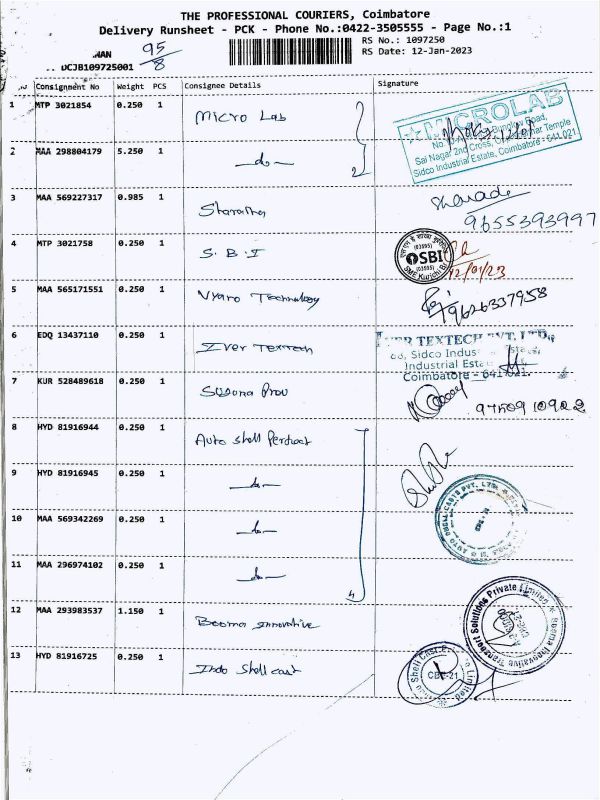 THE PROFESSIONAL COURIERS, Coimbatore
Delivery Runsheet - PCK - Phone No.:0422-3505555 - Page No.:1
RS No.: 1097250
RS Date: 12-Jan-2023
95/8
DCJB109725001
Consignment No Weight PCS Consignee Details Signature
1 MTP 3021854 0.250 1 Micro Lab
MICROLAB
Sai Nagar 2nd Cross,
Sidco Industrial Estate, Coimbatore - 641 021
2 MAA 298804179 5.250 1 -do- 2
3 MAA 569227317 0.985 1 Sharatha
9655393997
4 MTP 3021758 0.250 1 S.B.I
(03595)
SBI
(03595)
12/01/23
5 MAA 565171551 0.250 1 Vyaro Technology
9626337958
6 EDQ 13437110 0.250 1 Iver Textech
TEXTECH PVT. LTD.,
Industrial Estate
Coimbatore - 641 021.
7 KUR 528489618 0.250 1
9750910922
8 HYD 81916944 0.250 1 Auto Shell
9 HYD 81916945 0.250 1 -do-
10 MAA 569342269 0.250 1 -do-
11 MAA 296974102 0.250 1 -do- 4
12 MAA 293983537 1.150 1 Booma Innovative
Booma Innovative Transport Solutions Private Limited
13 HYD 81916725 0.250 1 Indo Shell cast
CBE-21